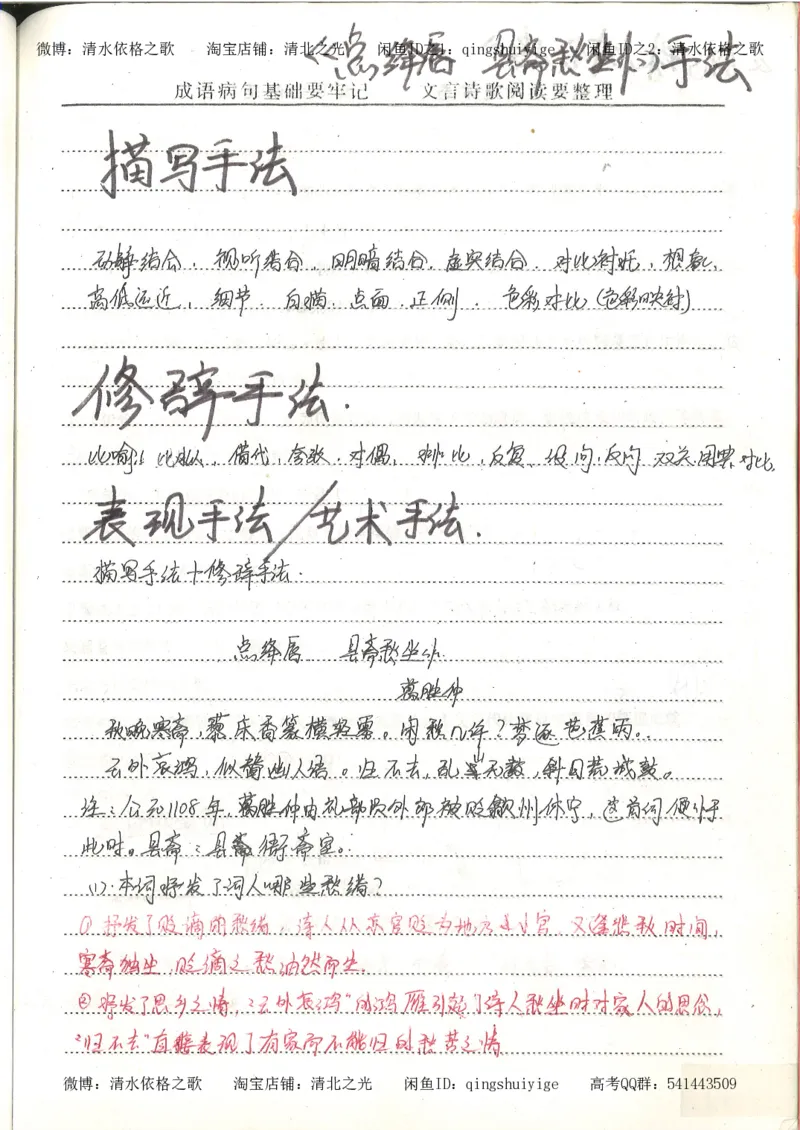 微博：清水依格之歌 淘宝店铺：清北之光 闲鱼ID之1：qingshuiyige 闲鱼ID之2：清水依格之歌
《点绛唇 县斋愁坐作》手法
成语病句基础要牢记 文言诗歌阅读要整理
描写手法
动静结合，视听结合，明暗结合，虚实结合，对比衬托，想象，
高低远近，细节，白描，点面，正侧，色彩对比（色彩映衬）
修辞手法.
比喻，比拟，借代，夸张，对偶，排比，反复，设问，反问 双关 用典 对比
表现手法/艺术手法.
描写手法+修辞手法.
点绛唇 县斋愁坐作
葛胜仲
秋晚寒斋，藜床香篆横轻雾。闲愁几许？梦逐芭蕉雨。
云外哀鸿，似替幽人语。归不去，乱山无数，斜日荒城鼓。
注：公元1108年，葛胜仲由礼部员外郎被贬歙州休宁，这首词便作于
此时。县斋：县衙斋室。
(1).本词抒发了词人哪些愁绪？
①抒发了贬谪的愁绪，诗人从京官贬为地方官，又逢悲秋时间，
寒斋独坐，贬谪之愁油然而生.
②抒发了思乡之情，“云外哀鸿”的鸿雁引起了诗人愁坐时对家人的思念，
“归不去”直接表现了有家而不能归的愁苦之情
微博：清水依格之歌 淘宝店铺：清北之光 闲鱼ID：qingshuiyige 高考QQ群：541443509